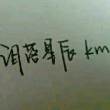 凋落星辰 km